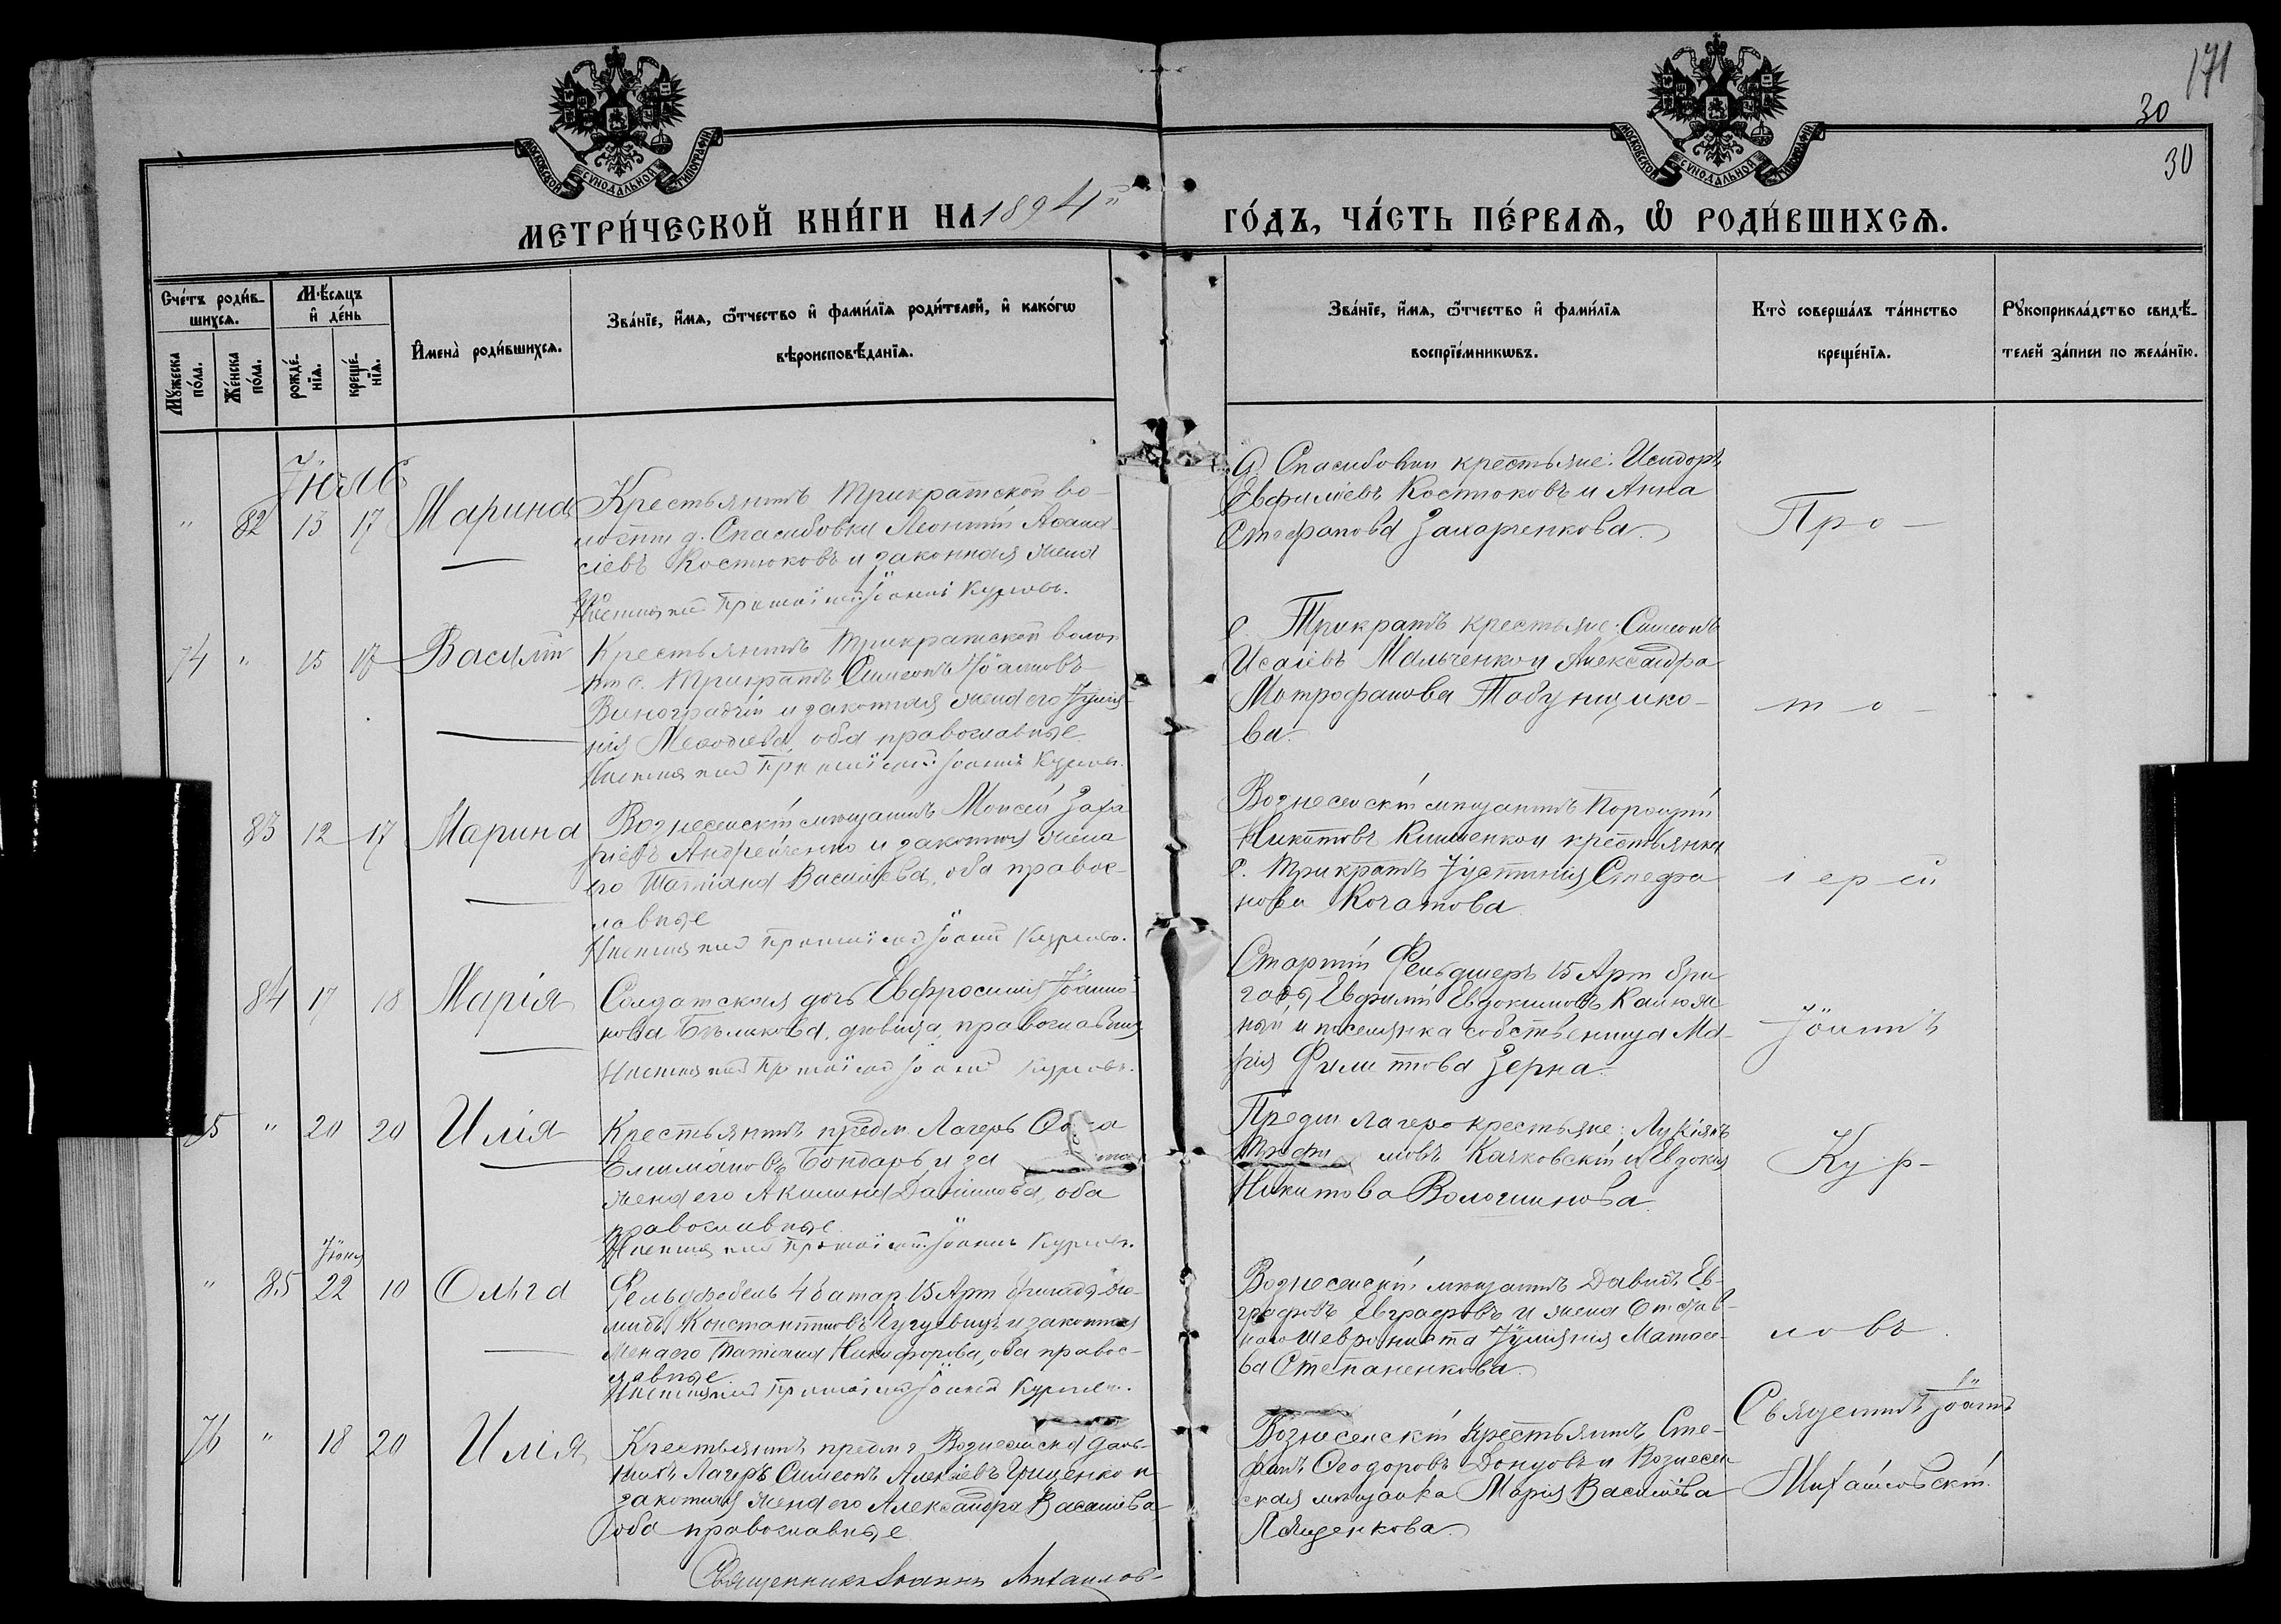 171
30
30
МОСКОВСКОЙ СѴНОДАЛЬНОЙ ТИПОГРАФІИ
МОСКОВСКОЙ СѴНОДАЛЬНОЙ ТИПОГРАФІИ
МЕТРИ́ЧЕСКОЙ КНИ́ГИ НА 1894й
ГО́ДЪ, ЧА́СТЬ ПЕ́РВАѦ, Ѿ РОДИ́ВШИХСѦ.
Сче́тъ роди́в-
шихсѧ.
Мꙋ́жеска по́ла.
Же́нска по́ла.
Мѣ́сѧцъ
и҆ де́нь
рожде́-
нїѧ.
креще́-
нїѧ.
И҆мена̀ роди́вшихсѧ.
Зва́нїе, и҆́мѧ, ѻ҆́тчество и҆ фами́лїѧ роди́телей, и҆ како́гѡ
вѣроисповѣ́данїѧ.
Зва́нїе, и҆́мѧ, ѻ҆́тчество и҆ фами́лїѧ
воспрїе́мникѡвъ.
Кто̀ соверша́лъ та́инство
креще́нїѧ.
Рꙋкоприкла́дство свидѣ́-
телей за́писи по жела́нїю.
Іюль
" 82 13 17 Марина
Крестьянинъ Трикратской во-
лости д. Спасибовки Леонтій Аѳана
сіевъ Костюковъ и законная жена
его
Іоаннъ Курловъ.
Д. Спасибовки крестьяне: Исидоръ
Евфиміевъ Костюковъ и Анна
Стефанова Захарченкова.
Про-
74 " 15 17 Василій
Крестьянинъ Трикратской волос
ти с. Трикратъ Симеонъ Іоанновъ
Виноградчій и законная жена его Іуліа-
нія Меѳодіева, оба православные
Іоаннъ Курловъ.
с. Трикратъ крестьяне: Симеонъ
Исаіевъ Мальченко и Александра
Митрофанова Табунщико-
ва.
то-
83 12 17 Марина
Вознесенскій мѣщанинъ Моисей Заха
ріевъ Андрейченко и законная жена
его Татіана Василіева, оба правос-
лавные
Іоаннъ Курловъ.
Вознесенскій мѣщанинъ Порфирій
Никитовъ Кишенко и крестьянка
с. Трикратъ Іустинія Стефа
нова Кочатова
іерей
84 17 18 Марія
Солдатская дочь Евфросинія Іоанно-
нова Бѣликова, дѣвица, православная
Іоаннъ Курловъ.
Старшій Фельдшеръ 15 Арт бри
гады Евфимій Евдокимовъ Калюж
ный и поселянка собственница Ма-
рія Филиппова Зерна.
Іоаннъ
75 " 20 20 Илія
Крестьянинъ предм Лагерь
Бондарь и за
жена его Акилина Даніилова, оба
православные
Іоаннъ Курловъ.
Предм Лагерь крестьяне: Лукіянъ
Трофи мовъ Качковскій и Евдокія
Никитова Вологшинова.
Кур-
Іюня
" 85 22 10 Ольга
Фельдфебель 4 батар 15 Арт бригады
Константиновъ Чугуевицъ и законная
жена его Татіана Никифорова, оба правос-
лавные
Іоаннъ Курловъ.
Вознесенскій мѣщанинъ Давидъ Ев-
графовъ Евграфовъ и жена Отстав-
ного Шеврониста Іуліанія Матѳее-
ва Степаненкова.
ловъ.
76 " 18 20 Илія
Крестьянинъ предм г. Вознесенска Даль-
нихъ Лагерь Симеонъ Алексіевъ Грищенко и
законная жена его Александра Василіева
оба православные
Священникъ Іоаннъ Михайлов-
Вознесенскій крестьянинъ Сте-
фанъ Ѳеодоровъ Донцовъ и Вознесен
ская мѣщанка Марія Василіева
Лященкова.
Священникъ Іоаннъ
Михайловскій.